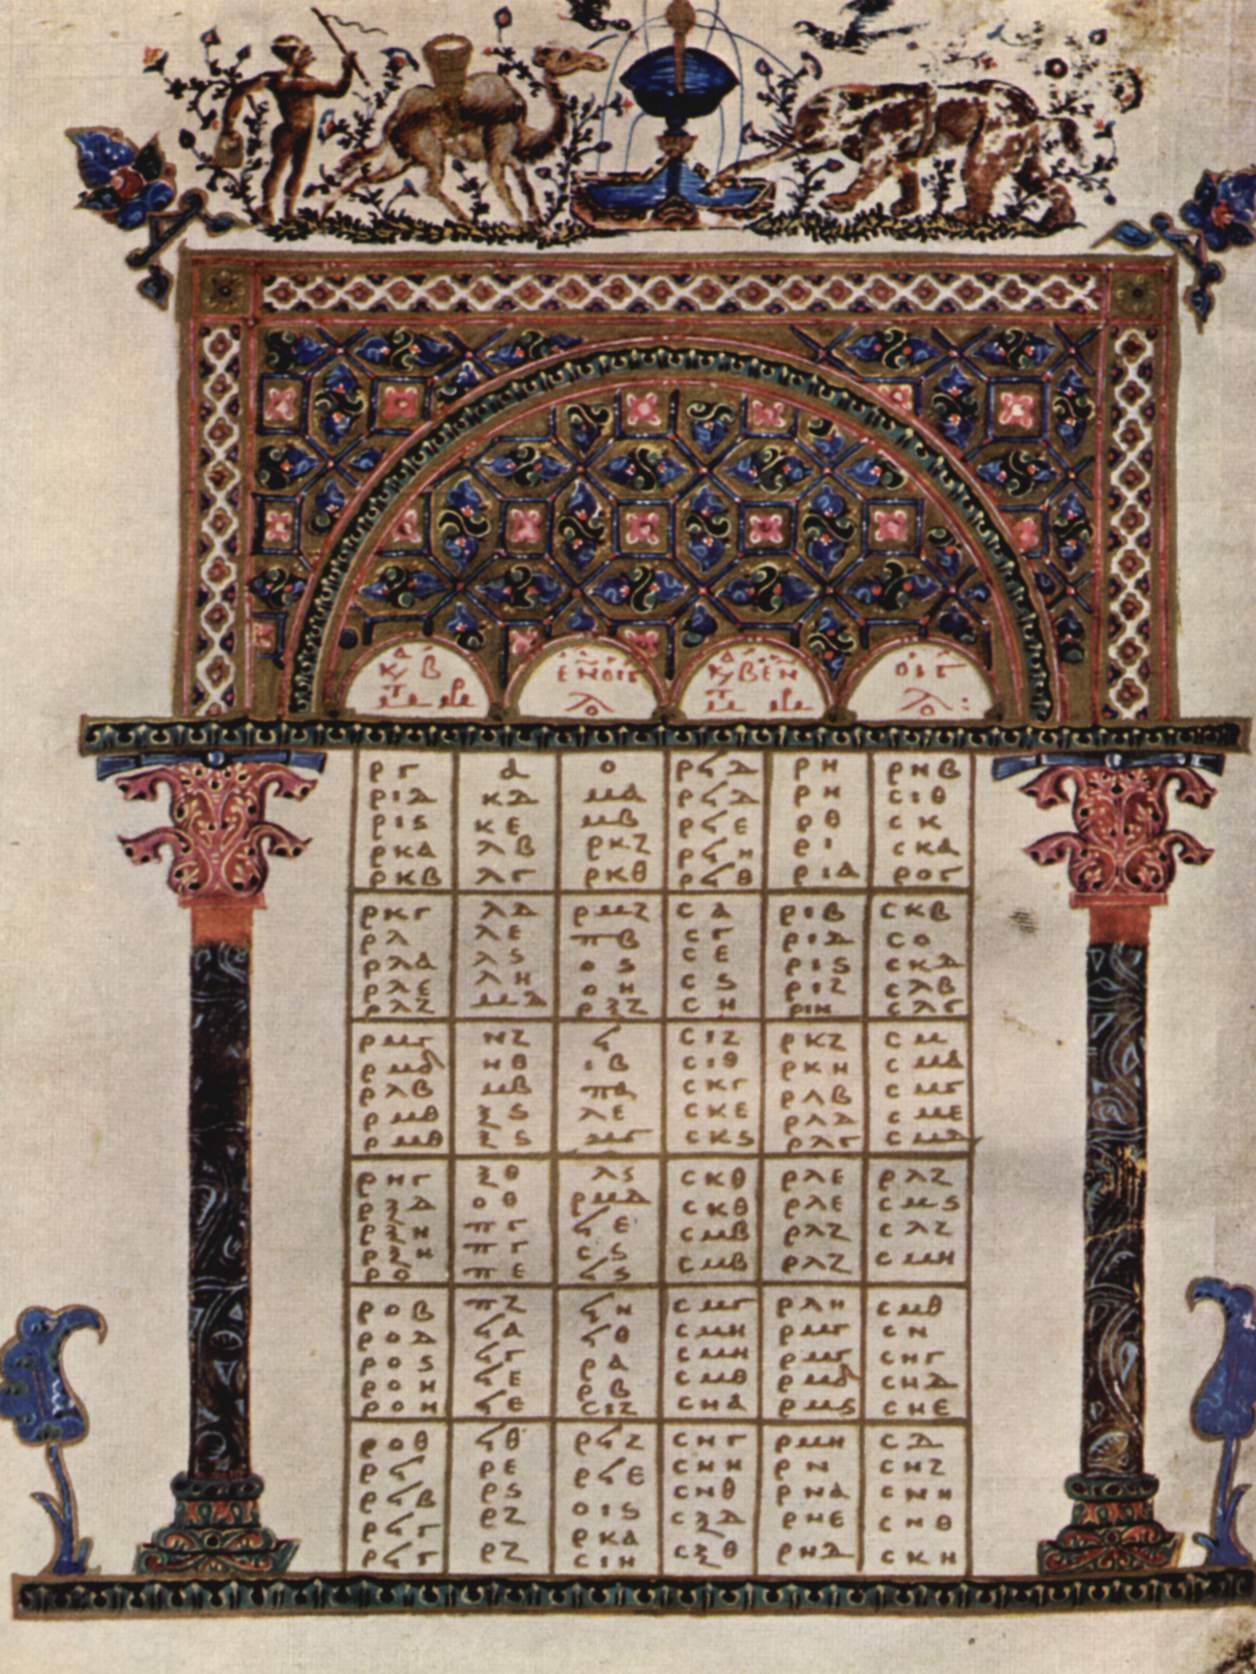 ργ α ο ρϟδ ρη ρνβ
ριδ κδ μα ρϟδ ρη σιθ
ριϛ κε μβ ρϟε ρθ σκ
ρκα λβ ρκζ ρϟη ρι σκα
ρκβ λγ ρκθ ρϟθ ρια ροΓ
ρκγ λδ ρμζ σα ριβ σκβ
ρλ λε πβ σγ ριδ σο
ρλα λϛ οϛ σε ριϛ σκδ
ρλε λη οη σϛ ριζ σλβ
ρλζ μδ ρξζ ση ριη σλγ
ρμγ νζ ϟ σιζ ρκζ σμ
ρμδ νθ ιβ σιθ ρκη σμα
ρλβ μβ πα σκγ ρλβ σμγ
ρμθ ξϛ λε σκε ρλδ σμε
ρμθ ξϛ μγ σκϛ ρλγ σμδ
ρνγ ξθ λϛ σκθ ρλε ρλζ
ρξδ οθ ρμδ σκθ ρλε σμϛ
ρξη πγ ϟε σμβ ρλζ σλζ
ρξη πγ σϛ σμβ ρλζ σμη
ρο πε ϟϛ
ροβ πζ ϟη σμγ ρλη σμθ
ροδ ϟα ϟθ σμη ρμγ σν
ροϛ ϟγ ρα σμη ρμγ σνγ
ροη ϟε ρβ σμθ ρμδ σνδ
ροη ϟε σιζ σνα ρμϛ σνε
ροθ ϟθ ρϟζ σνγ ρμη σδ
ρϟ ρε ρϟε σνη ρν σνζ
ρϟβ ρϛ σιϛ σνθ ρνα σνη
ρϟγ ρζ ρκα σξδ ρνε σνθ
ρϟγ ρζ σιη σξθ ρνδ σκη